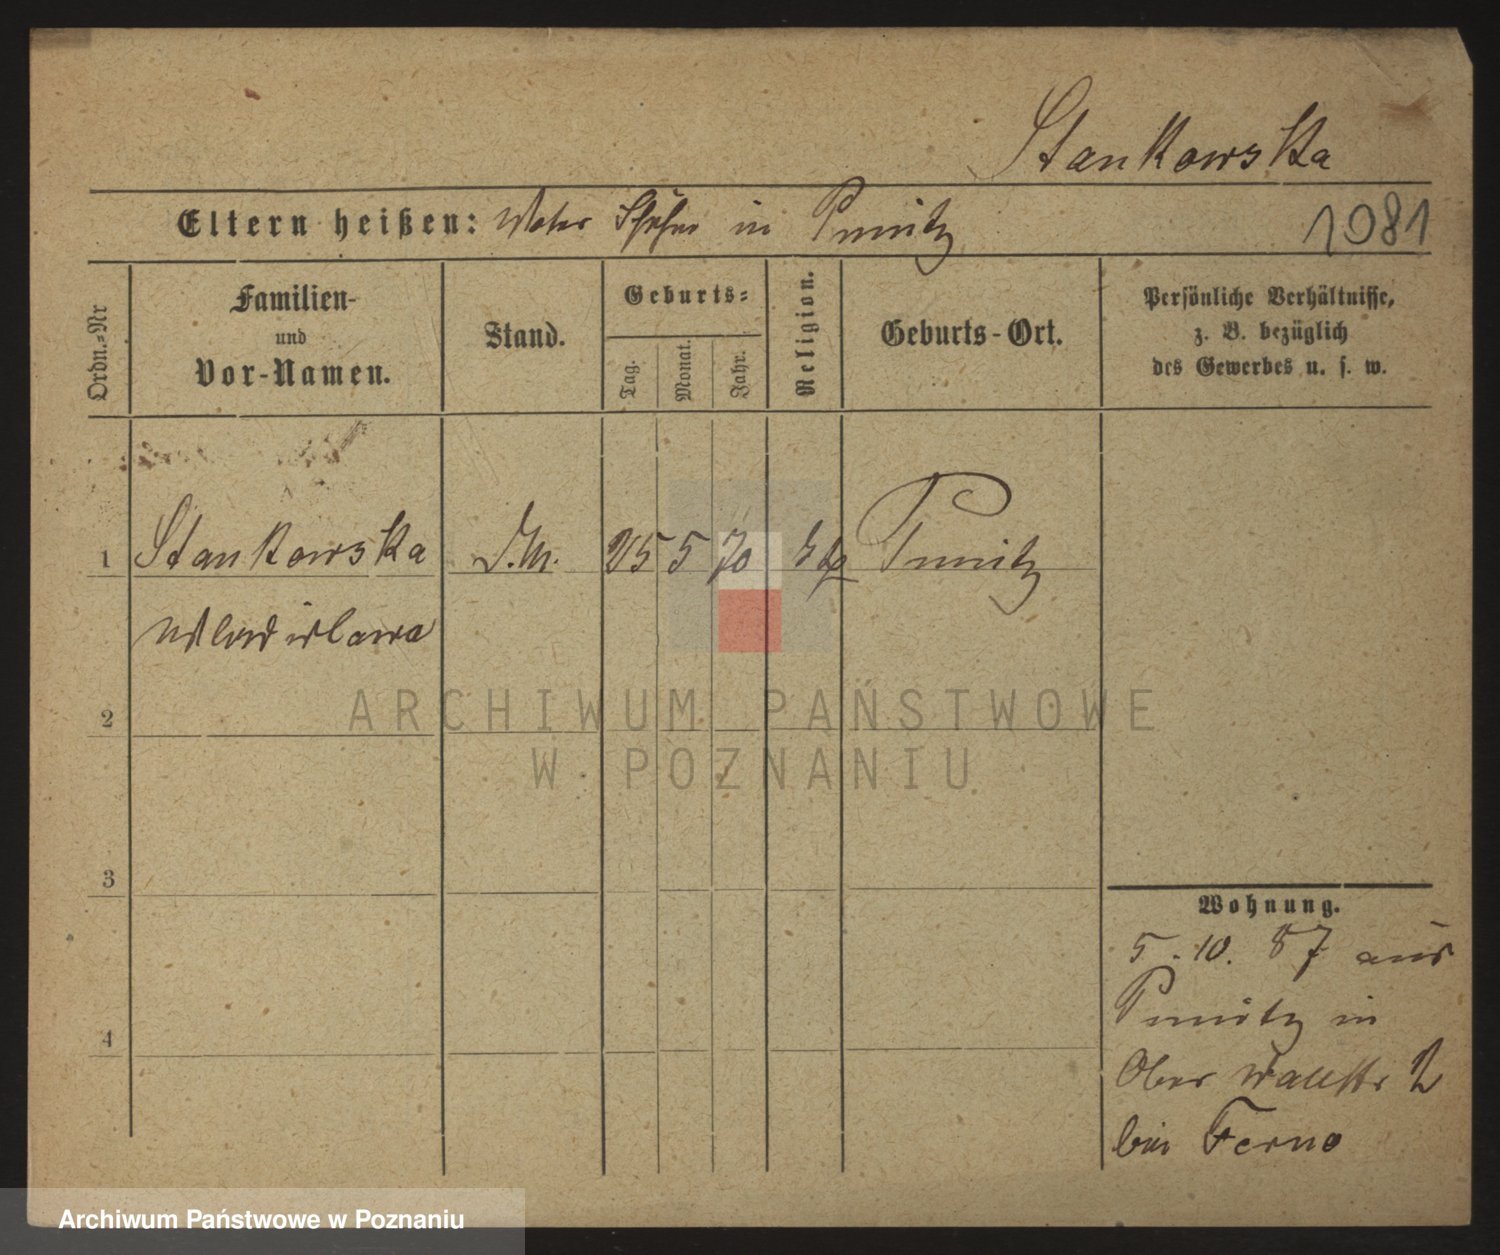 Stankowska
Eltern heißen: Vater in Punitz
1081
Ordn.-Nr
Familien-
und
Vor-Namen.
Stand.
Geburts-
Tag.
Monat.
Jahr.
Religion.
Geburts-Ort.
Persönliche Verhältnisse,
z. B. bezüglich
des Gewerbes u. s. w.
1 Stankowska D.M. 25 5 70 ktl Punitz
Wladislawa
2
3
4
Wohnung.
5.10.87 aus
Punitz in
Ober Wallstr 2
bei Ferno
ARCHIWUM PAŃSTWOWE
W POZNANIU
Archiwum Państwowe w Poznaniu